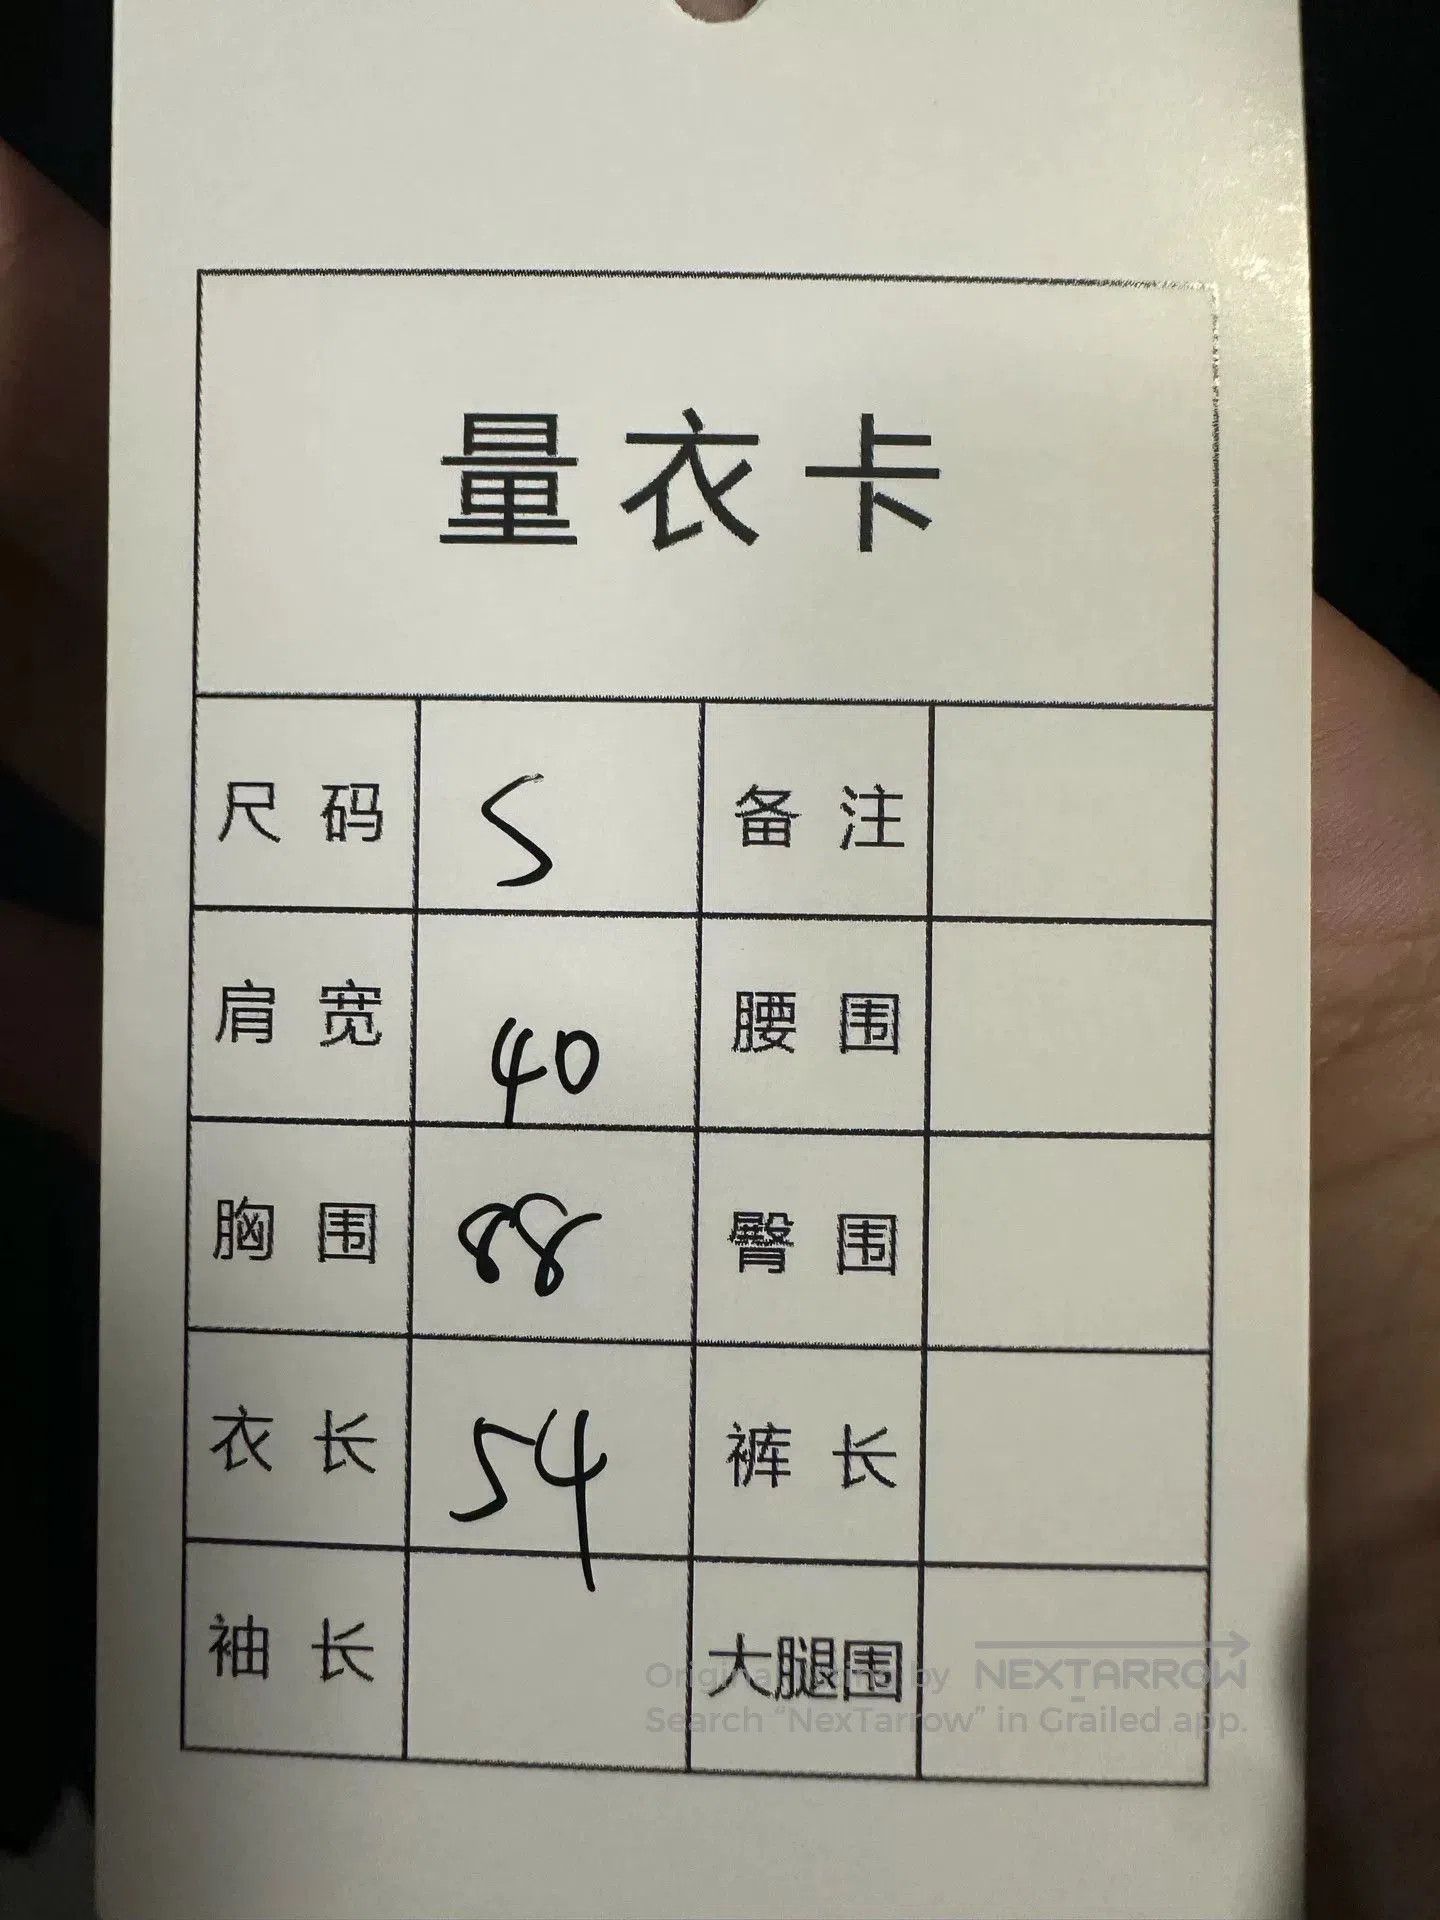 量衣卡
尺码 S 备注
肩宽 40 腰围
胸围 88 臀围
衣长 54 裤长
袖长 大腿围
Original by NEXTARROW
Search “NexTarrow” in Grailed app.